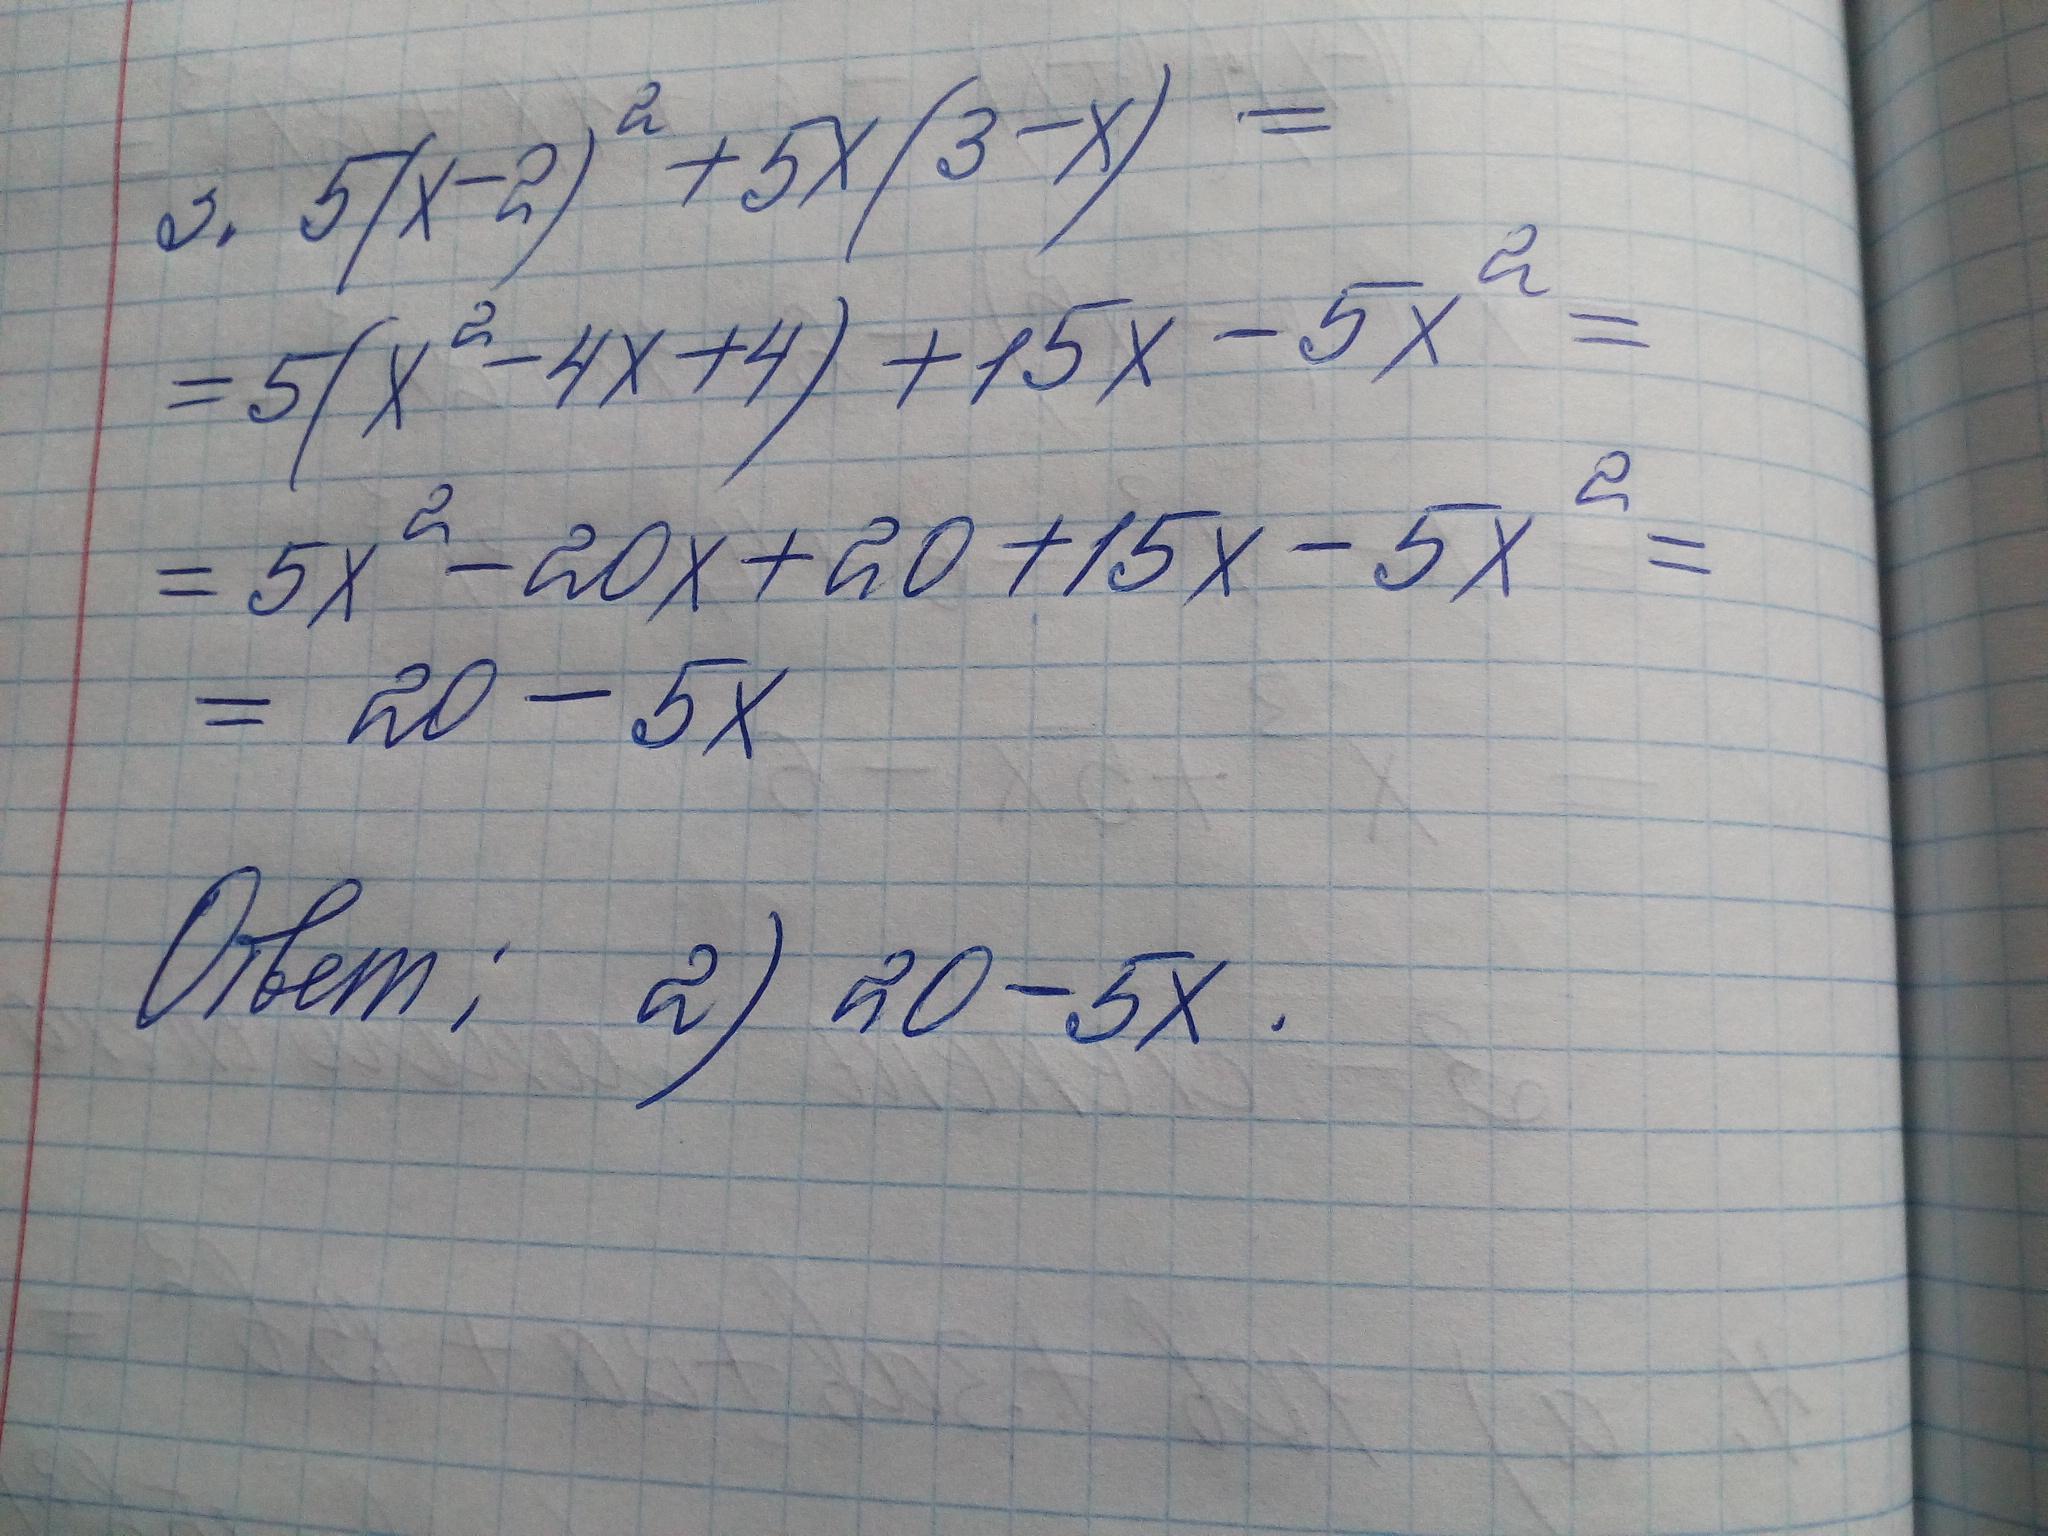 3. 5(x-2)² + 5x(3-x) =
= 5(x² - 4x + 4) + 15x - 5x² =
= 5x² - 20x + 20 + 15x - 5x² =
= 20 - 5x
Ответ: 2) 20 - 5x.